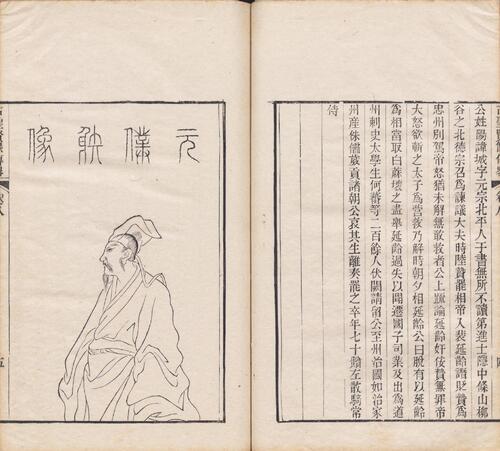 公姓陽諱城字元宗北平人于書無所不讀第進士隱中條山柳
谷之北德宗召為諫議大夫時陸贄罷相帝入裴延齡譖貶贄為
忠州別駕帝怒猶未解無敢救者公上疏論延齡奸佞贄無罪帝
大怒欲斬之太子為營救乃解時朝夕相延齡公曰脫有以延齡
為相當取白麻壞之盡舉延齡過失以聞遷國子司業及出為道
州刺史太學生何蕃等二百餘人伏闕請留公至州治國如治家
州產侏儒歲貢諸朝公哀其生離奏罷之卒年七十贈左散騎常
侍
元僕射像
五